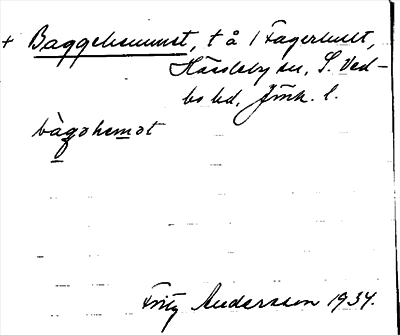 + Baggehemmet, t å 1 Fagerhult,
Hässleby sn, S. Ved-
bo hd, Jönk. l.
bàgohemot
Fritz Andersson 1934.